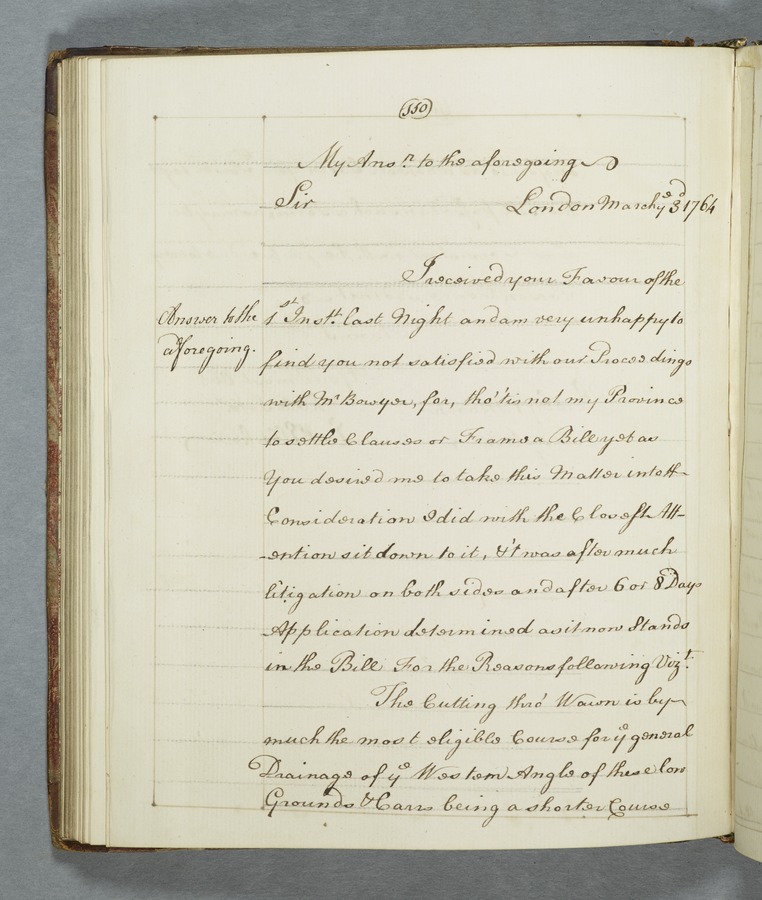 (110)
My Ansr. to the aforegoing
Sir London March ye 3d 1764
I received your Favour of the
Answer to the
aforegoing.
1st Instt. last Night and am very unhappy to
find you not satisfied with our Proceedings
with Mr Bowyer, for, tho' 'tis not my Province
to settle Clauses or Frame a Bill yet as
You desired me to take this Matter into
Consideration I did with the Closest Att-
-ention sit down to it, & 't was after much
litigation on both sides and after 6 or 8 Days
Application determined as it now Stands
in the Bill For the Reasons following Vizt.
The Cutting thro' Wawn is by
much the most eligible Course for ye general
Drainage of ye Western Angle of these low
Grounds & Carrs being a shorter Course